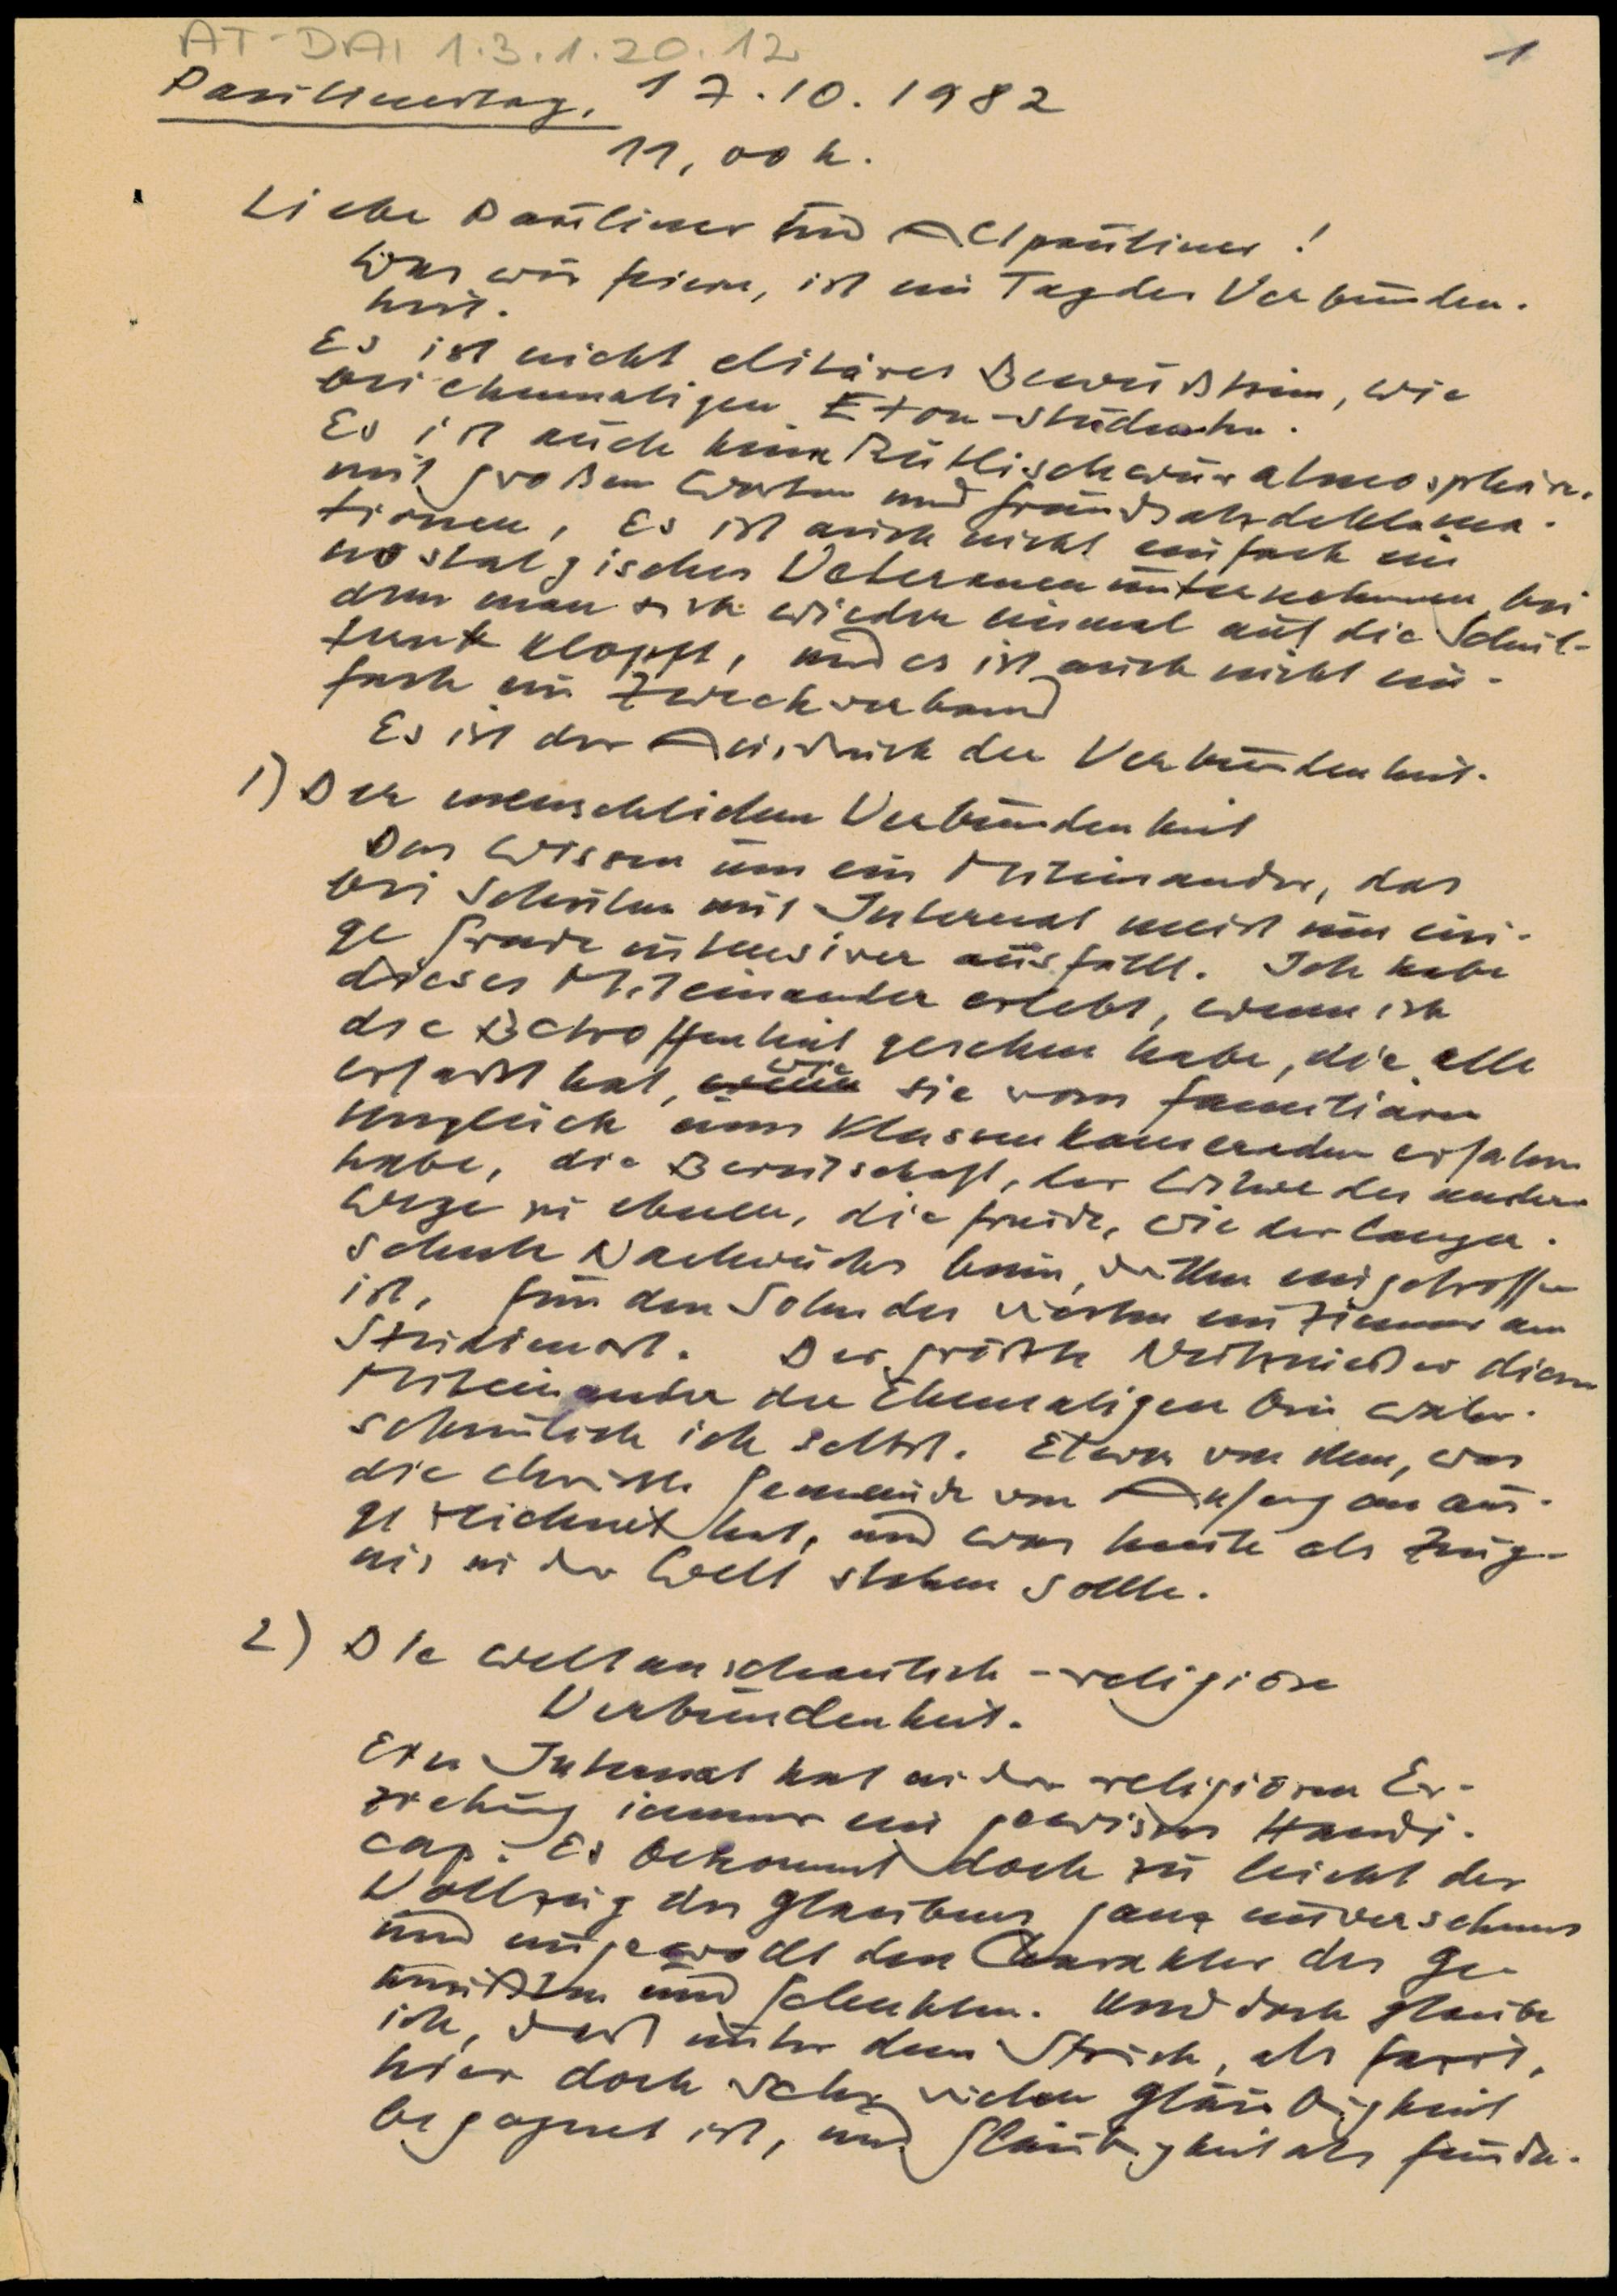 AT-DAI 1.3.1.20.12
1
Paulinertag, 17.10.1982
11,00 h.
Liebe Pauliner und Altpauliner!
Was wir feiern, ist ein Tag der Verbunden-
heit.
Es ist nicht elitäres Bewußtsein, wie
bei ehemaligen Eton-Studenten.
Es ist auch keine Rütlischwuratmosphäre.
mit großen Worten und Grundsatzdeklama-
tionen, Es ist auch nicht einfach ein
nostalgisches Veteranenunternehmen, bei
dem man sich wieder einmal auf die Schul-
tern klopft, und es ist auch nicht ein-
fach ein Zweckverband
Es ist der Ausdruck der Verbundenheit.
1) Der menschlichen Verbundenheit
Das Wissen um ein Miteinander, das
bei Schulen mit Internat meist um eini-
ge Grade intensiver ausfällt. Ich habe
dieses Miteinander erlebt, wenn ich
die Betroffenheit gesehen habe, die alle
erfaßt hat, wie sie vom familiären
Unglück eines Klassenkameraden erfahren
habe, die Bereitschaft, der Witwe des andern
Wege zu ebnen, die Freude, wie der langer-
sehnte Nachwuchs beim dritten eingetroffen
ist, für den Sohn des vierten ein Zimmer am
Studienort. Der größte Nutznießer dieses
Miteinander der Ehemaligen bin wahr-
scheinlich ich selbst. Etwas von dem, was
die christl. Gemeinde von Anfang an aus-
gezeichnet hat, und was heute als Zeug-
nis in der Welt stehen sollte.
2) Die weltanschaulich-religiöse
Verbundenheit.
Ein Internat hat in der religiösen Er-
ziehung immer ein gewisses Handi-
cap. Es bekommt doch zu leicht der
Vollzug des Glaubens ganz unversehens
und ungewollt den Charakter des Ge-
mußten und Gelenkten. Und doch glaube
ich, daß unter dem Strich, als Fazit,
hier doch sehr vielen Gläubigkeit
begegnet ist, und Gläubigkeit als Funda-